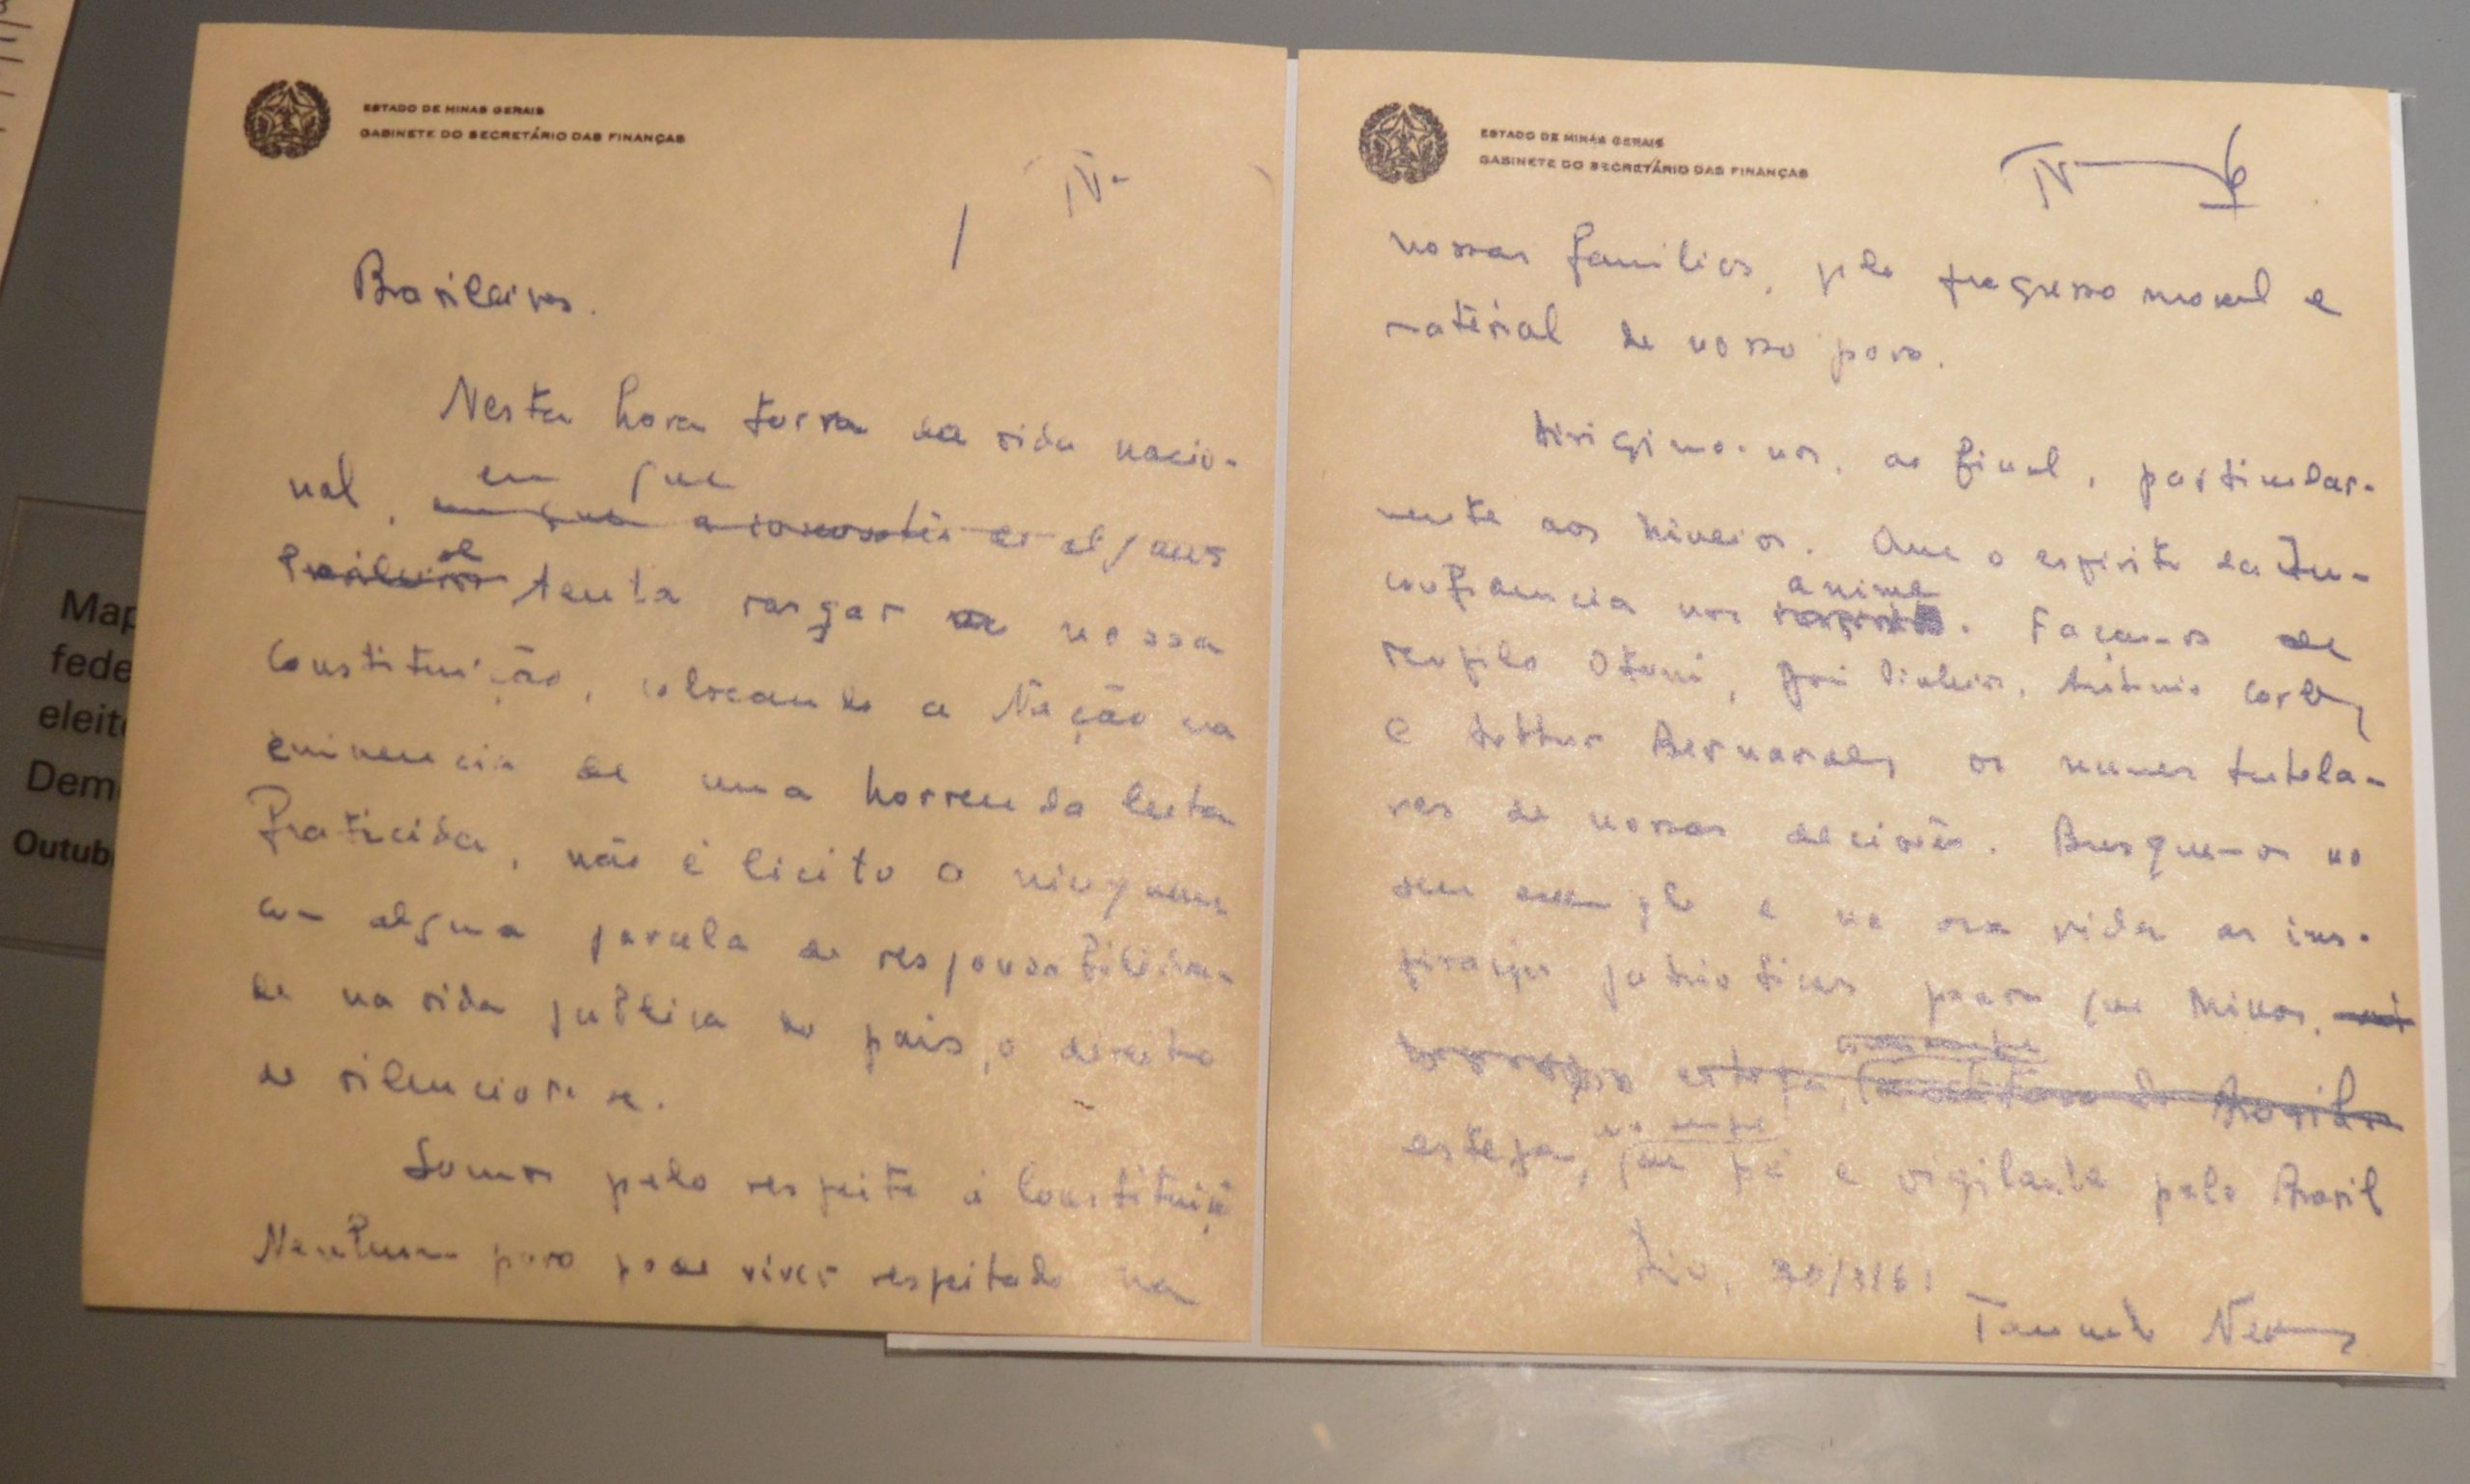 ESTADO DE MINAS GERAIS
GABINETE DO SECRETÁRIO DAS FINANÇAS
IV-
Brasileiros.
Nesta hora turva da vida nacio-
nal,
em que
alguns
se
tenta rasgar a nossa
Constituição, colocando a Nação na
eminencia de uma horrenda luta
fraticida, não é licito a ninguem
com alguma parcela de responsabilida-
de na vida publica do pais, o direito
de silenciar-se.
Somos pelo respeito á Constituiçã
Nenhum povo pode viver respeitado na
ESTADO DE MINAS GERAIS
GABINETE DO SECRETÁRIO DAS FINANÇAS
IV
6
nossas familias, pelo progresso moral e
material de nosso povo.
Dirigimo-nos, ao final, particular-
mente aos Mineiros. Que o espirito da In-
confidencia nos
anime
. Façamos de
Teofilo Otoni, João Pinheiro, Antonio Carlos
e Arthur Bernardes os numes tutela-
res de nossas decisões. Busquemos no
seu exemplo e na sua vida as ins-
pirações patrioticas para que Minas,
esteja,
como sempre
de pé e vigilante pelo Brasil
Rio, 30/8/61
Tancredo Neves
Map
fede
eleito
Dem
Outub